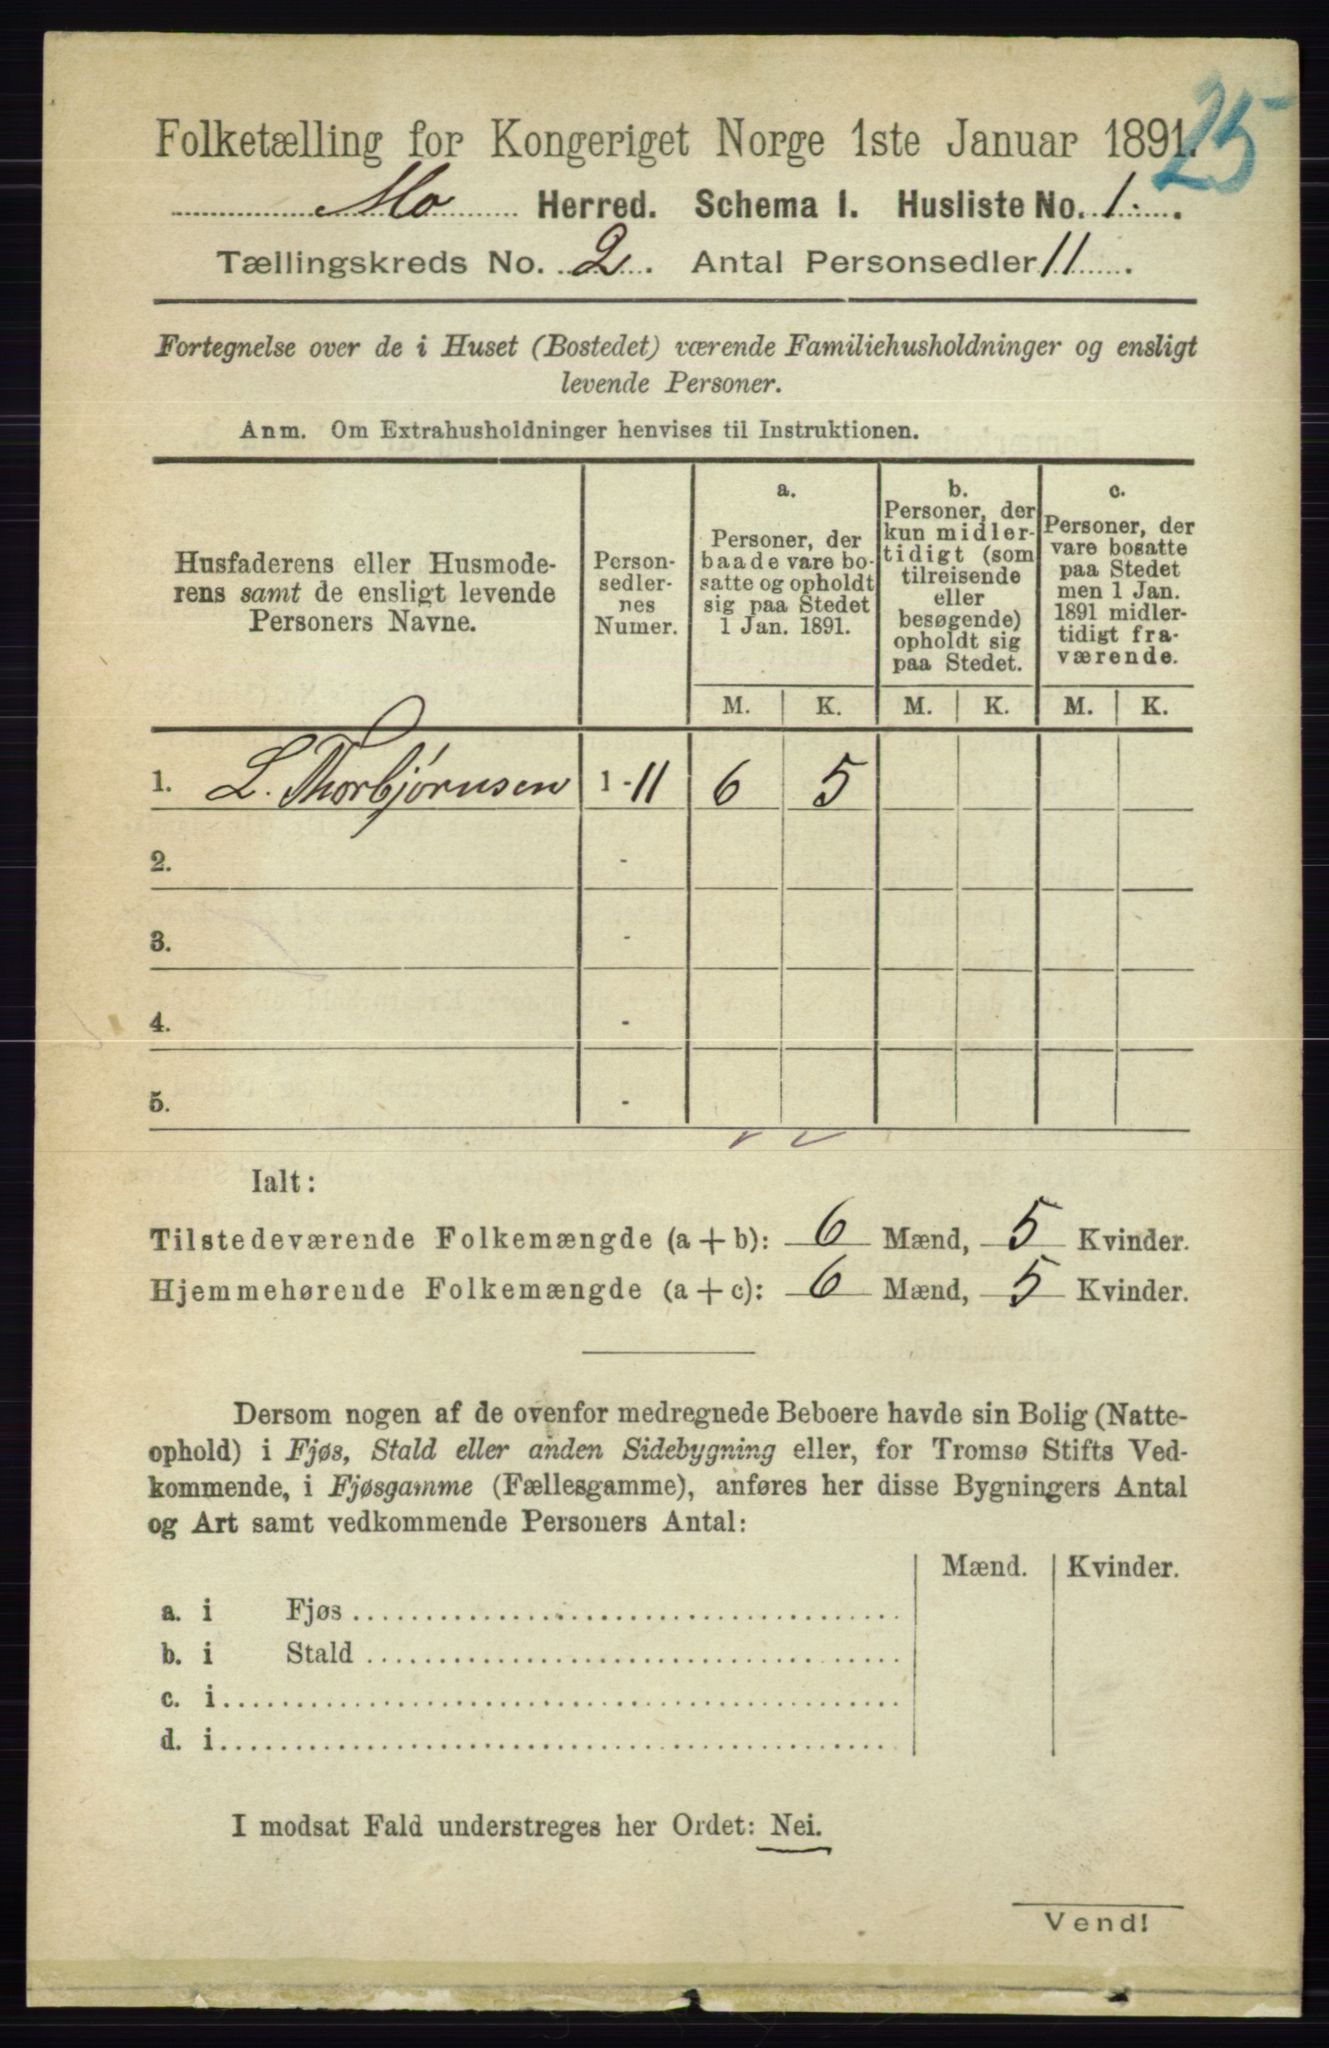 25
Folketælling for Kongeriget Norge 1ste Januar 1891.
Mo Herred. Schema I. Husliste No. 1.
Tællingskreds No. 2. Antal Personsedler 11.
Fortegnelse over de i Huset (Bostedet) værende Familiehusholdninger og ensligt
levende Personer.
Anm. Om Extrahusholdninger henvises til Instruktionen.
Husfaderens eller Husmode-
rens samt de ensligt levende
Personers Navne.
Person-
sedler-
nes
Numer.
a.
Personer, der
baade vare bo-
satte og opholdt
sig paa Stedet
1 Jan. 1891.
b.
Personer, der
kun midler-
tidigt (som
tilreisende
eller
besøgende)
opholdt sig
paa Stedet.
c.
Personer, der
vare bosatte
paa Stedet
men 1 Jan.
1891 midler-
tidigt fra-
værende.
M. K. M. K. M. K.
1. L. Thorbjørnsen 1-11 6 5
2. -
3. -
4. -
5. -
Ialt:
Tilstedeværende Folkemængde (a+b): 6 Mænd, 5 Kvinder.
Hjemmehørende Folkemængde (a+c): 6 Mænd, 5 Kvinder.
Dersom nogen af de ovenfor medregnede Beboere havde sin Bolig (Natte-
ophold) i Fjøs, Stald eller anden Sidebygning eller, for Tromsø Stifts Ved-
kommende, i Fjøsgamme (Fællesgamme), anføres her disse Bygningers Antal
og Art samt vedkommende Personers Antal:
Mænd. Kvinder.
a. i Fjøs
b. i Stald
c. i
d. i
I modsat Fald understreges her Ordet: Nei.
Vend!